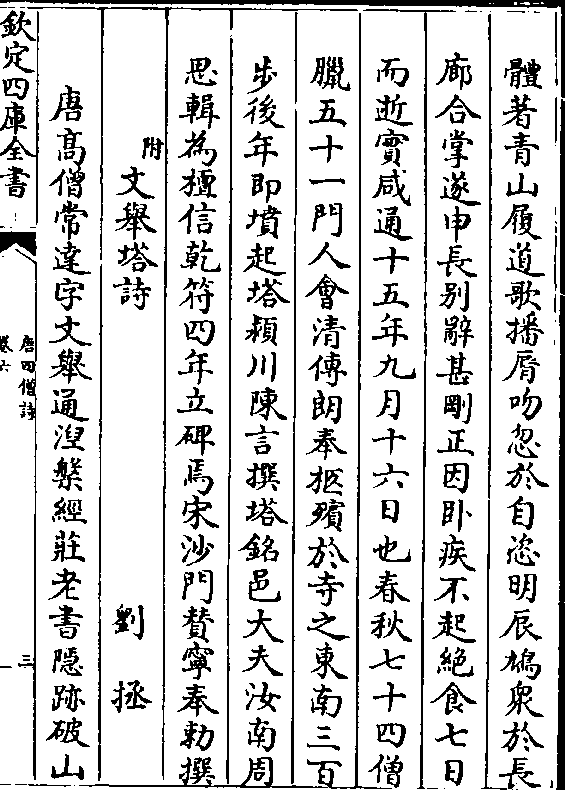 體著青山履道歌播脣吻忽於自恣明辰鳩衆於長
廊合掌遂申長别辭甚剛正因卧疾不起絶食七日
而逝實咸通十五年九月十六日也春秋七十四僧
臘五十一門人會清傳朗奉柩殯於寺之東南三百
步後年即墳起塔潁川陳言撰塔銘邑大夫汝南周
思輯為檀信乾符四年立碑焉宋沙門賛寧奉勅撰
附文舉塔詩　劉拯
唐髙僧常達字文舉通湼槃經莊老書隠跡破山
欽定四庫全書
唐四僧詩
卷六
三